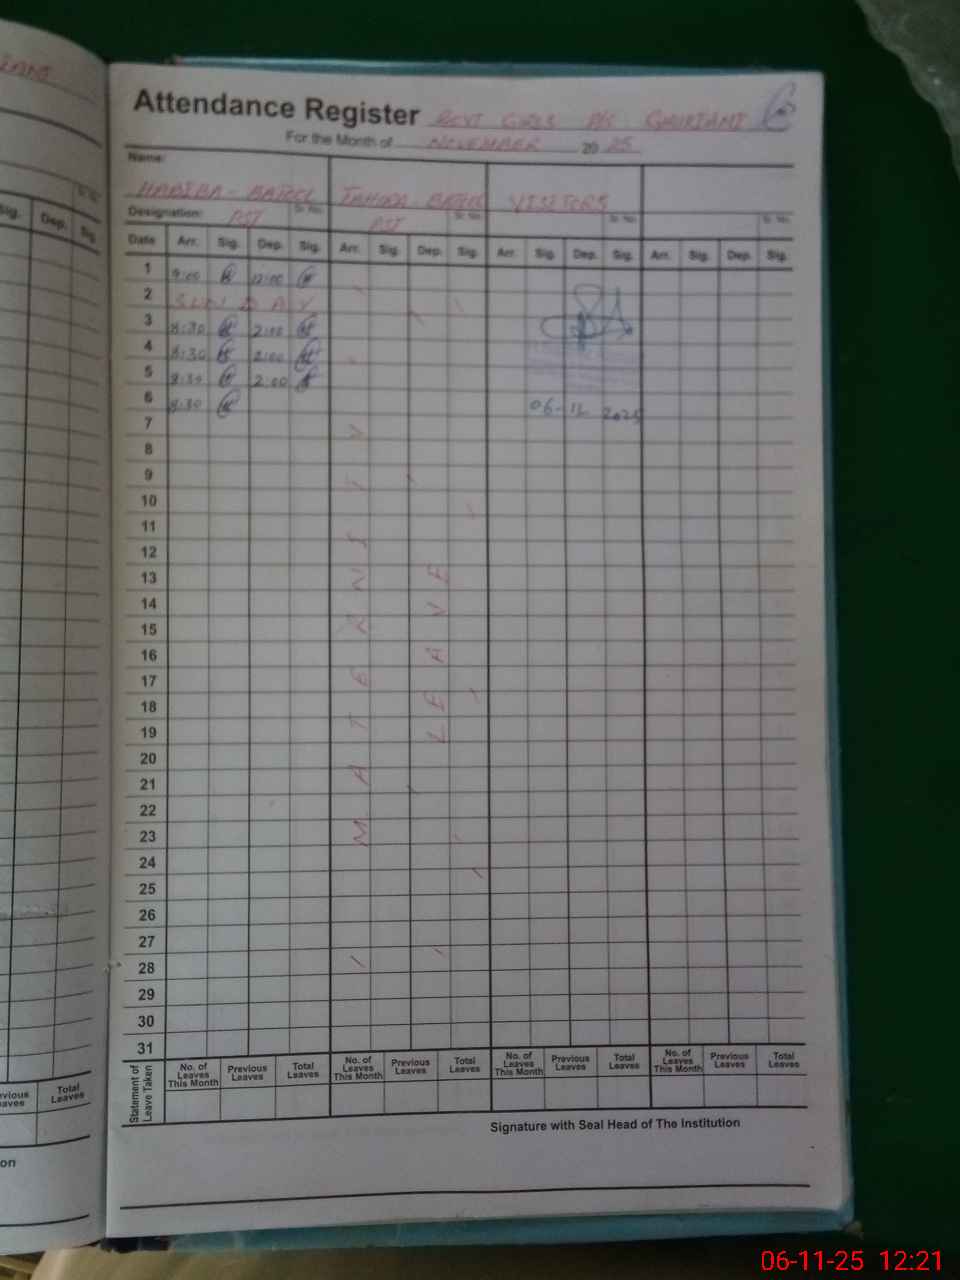 Attendance Register GOVT GIRLS P/S GAURIANI
For the Month of NOVEMBER 20 25
Name:
HABIBA - BATOOL TAHIRA BATOOL VISITORS
Designation: PST Sr. No. PST Sr. No. Sr. No. Sr. No.
Date Arr. Sig. Dep. Sig. Arr. Sig. Dep. Sig. Arr. Sig. Dep. Sig. Arr. Sig. Dep. Sig.
1 9:00 12:00
2 SUNDAY
3 8:30 2:00
4 8:30 2:00
5 8:30 2:00
6 8:30 06-11-2025
7
8
9
10
11
12
13
14
15
16
17
18
19
20
21
22
23
24
25
26
27
28
29
30
31
MATERNITY
LEAVE
Statement of Leave Taken
No. of Leaves This Month Previous Leaves Total Leaves No. of Leaves This Month Previous Leaves Total Leaves No. of Leaves This Month Previous Leaves Total Leaves No. of Leaves This Month Previous Leaves Total Leaves
Signature with Seal Head of The Institution
Sig. Dep. Sig.
Total Leaves
06-11-25 12:21